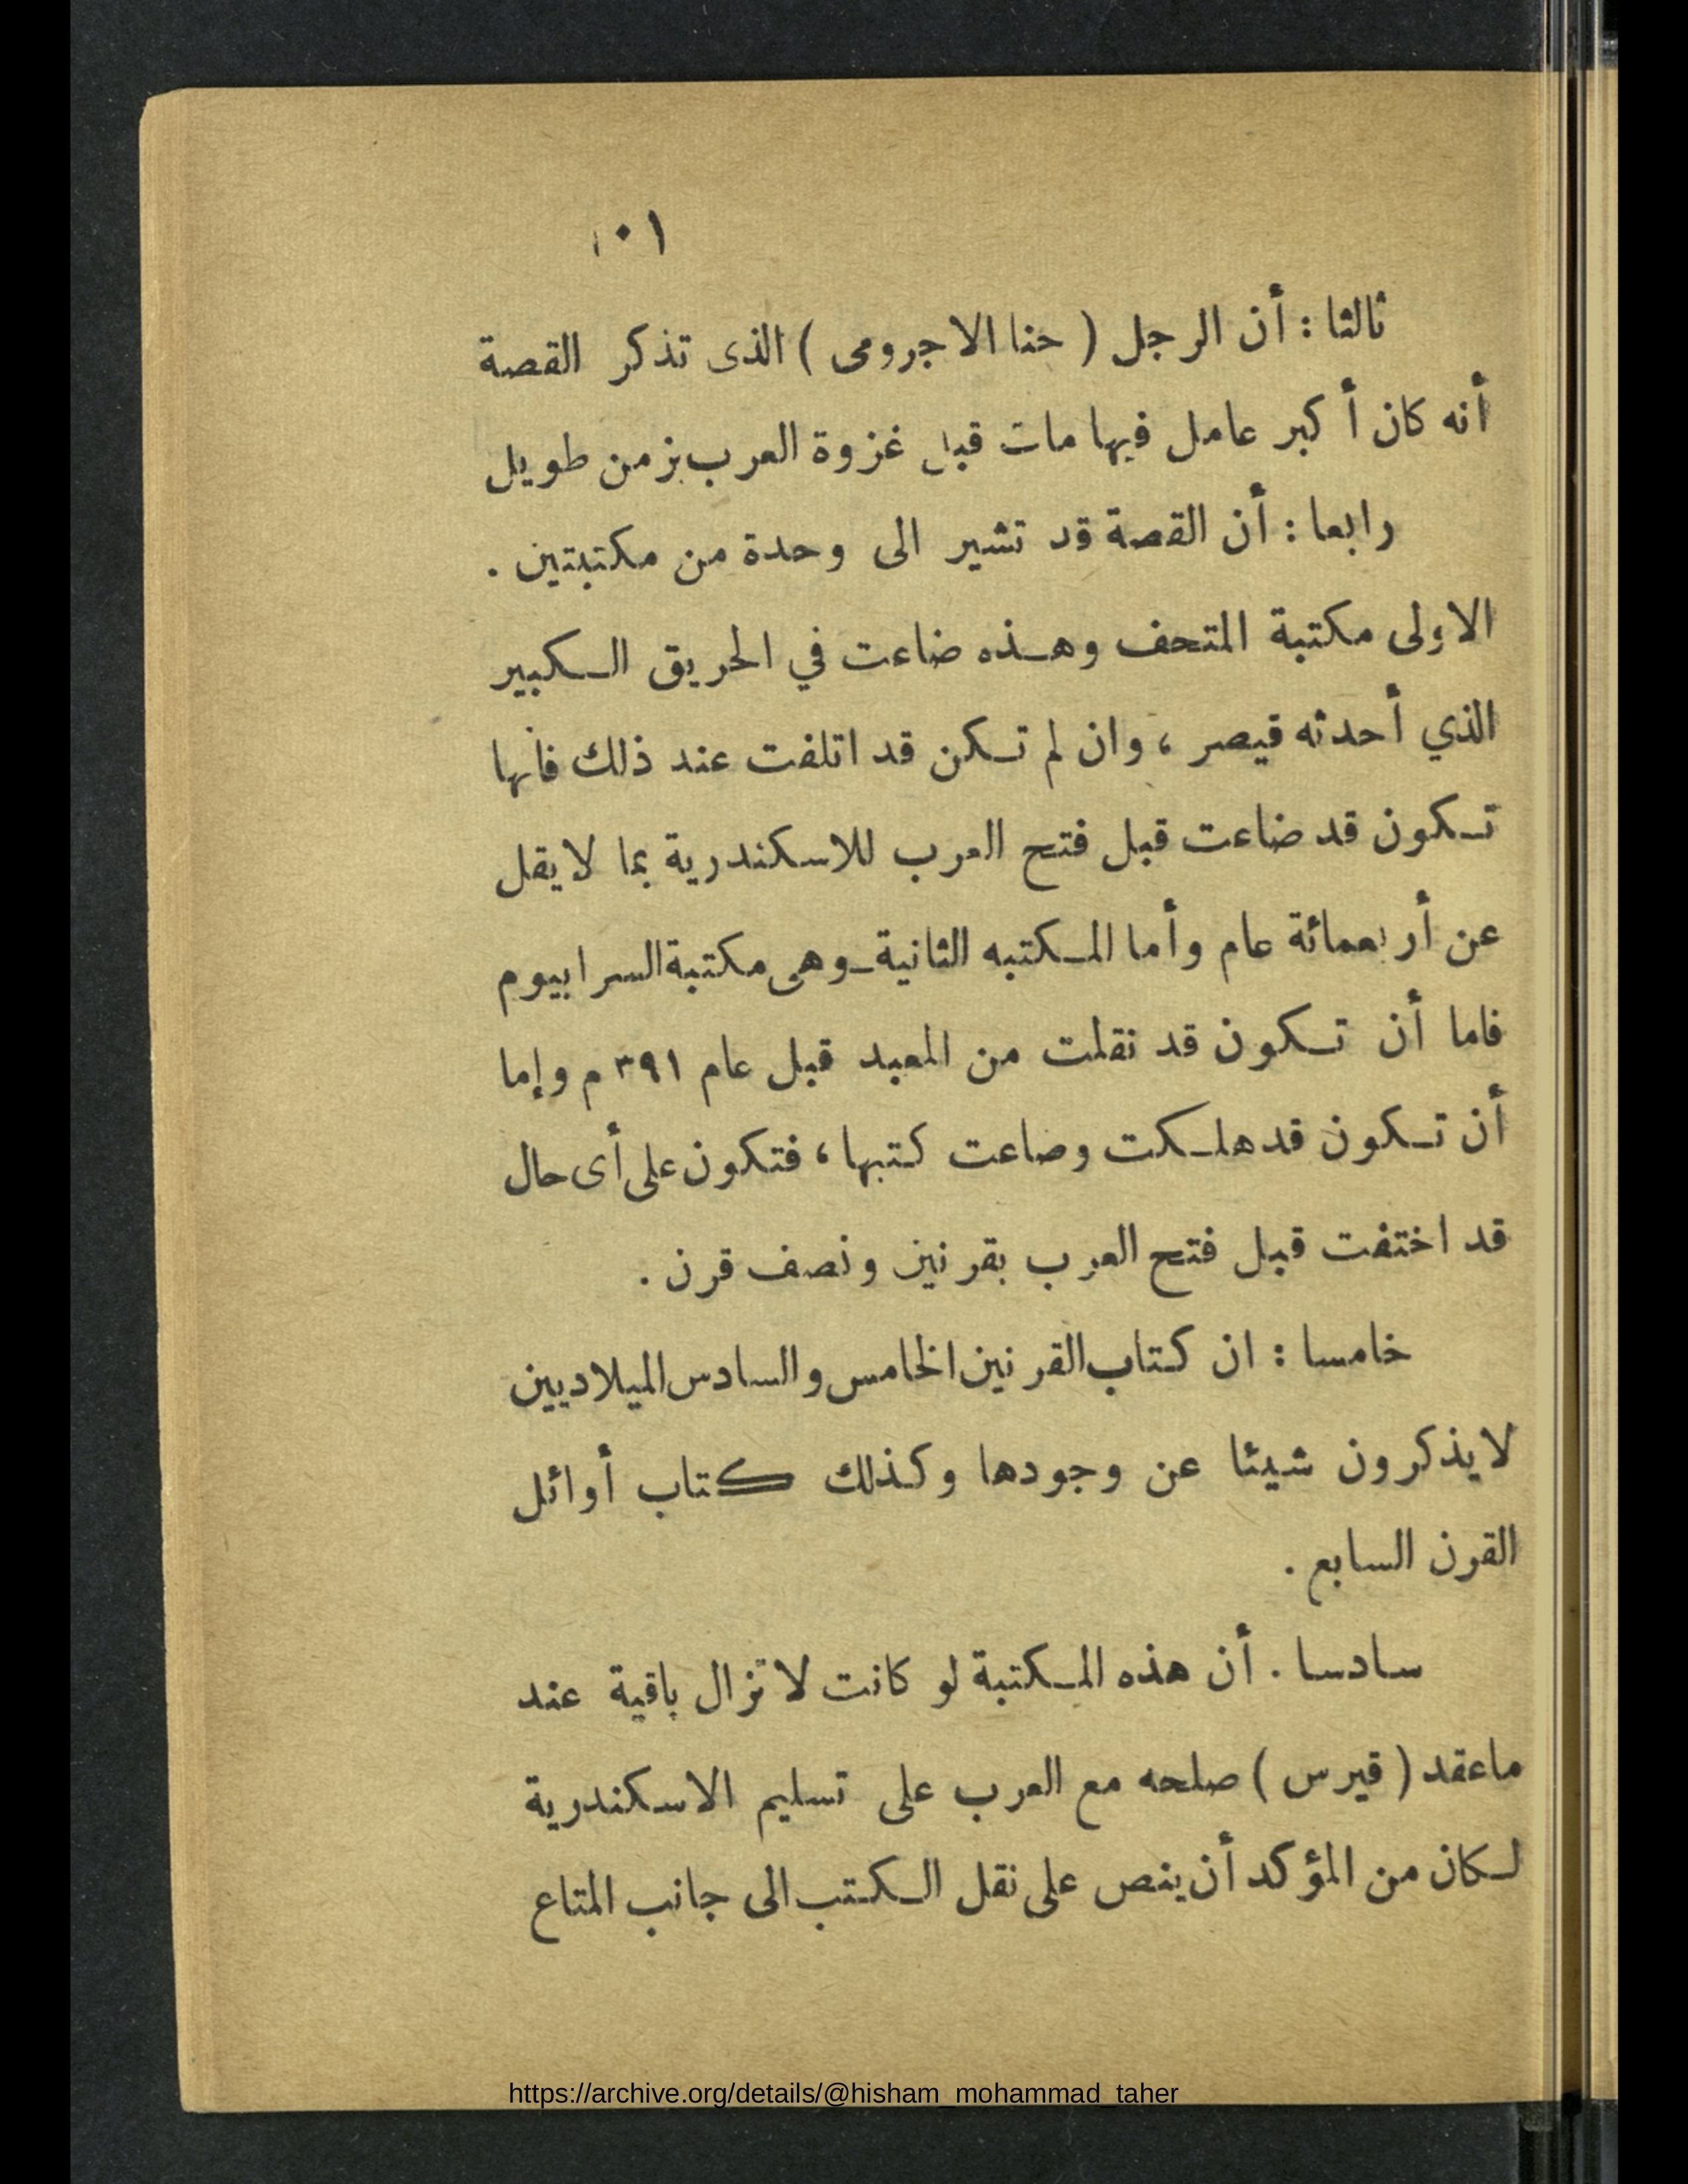 ١٠١
ثالثا : أن الرجل ( حنا الاجرومى ) الذى تذكر القصة
أنه كان أكبر عامل فيها مات قبل غزوة العرب بزمن طويل
رابعا : أن القصة قد تشير الى وحدة من مكتبتين .
الاولى مكتبة المتحف وهذه ضاعت في الحريق الكبير
الذي أحدثه قيصر ، وان لم تكن قد اتلفت عند ذلك فانها
تكون قد ضاعت قبل فتح العرب للاسكندرية بما لا يقل
عن أربعمائة عام وأما المكتبه الثانية ـ وهى مكتبة السرابيوم
فاما أن تكون قد نقلت من المعبد قبل عام ٣٩١ م وإما
أن تكون قد هلكت وضاعت كتبها ، فتكون على أى حال
قد اختفت قبل فتح العرب بقرنين ونصف قرن .
خامسا : ان كتاب القرنين الخامس والسادس الميلاديين
لا يذكرون شيئا عن وجودها وكذلك كتاب أوائل
القرن السابع .
سادسا . أن هذه المكتبة لو كانت لا تزال باقية عند
ماعقد ( قيرس ) صلحه مع العرب على تسليم الاسكندرية
لكان من المؤكد أن ينص على نقل الكتب الى جانب المتاع
https://archive.org/details/@hisham_mohammad_taher